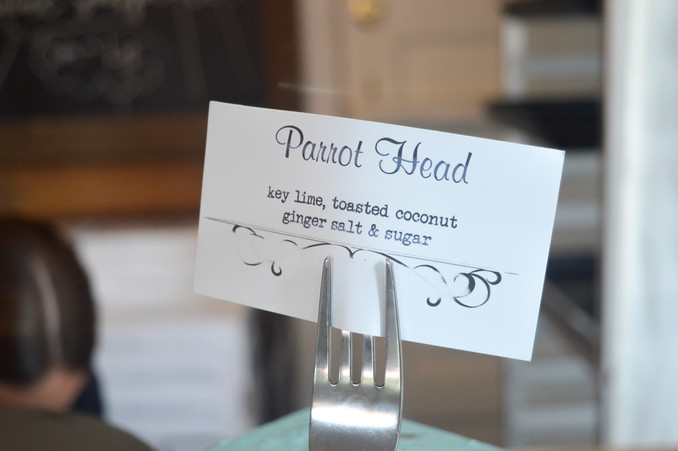 Parrot Head
key lime, toasted coconut
ginger salt & sugar